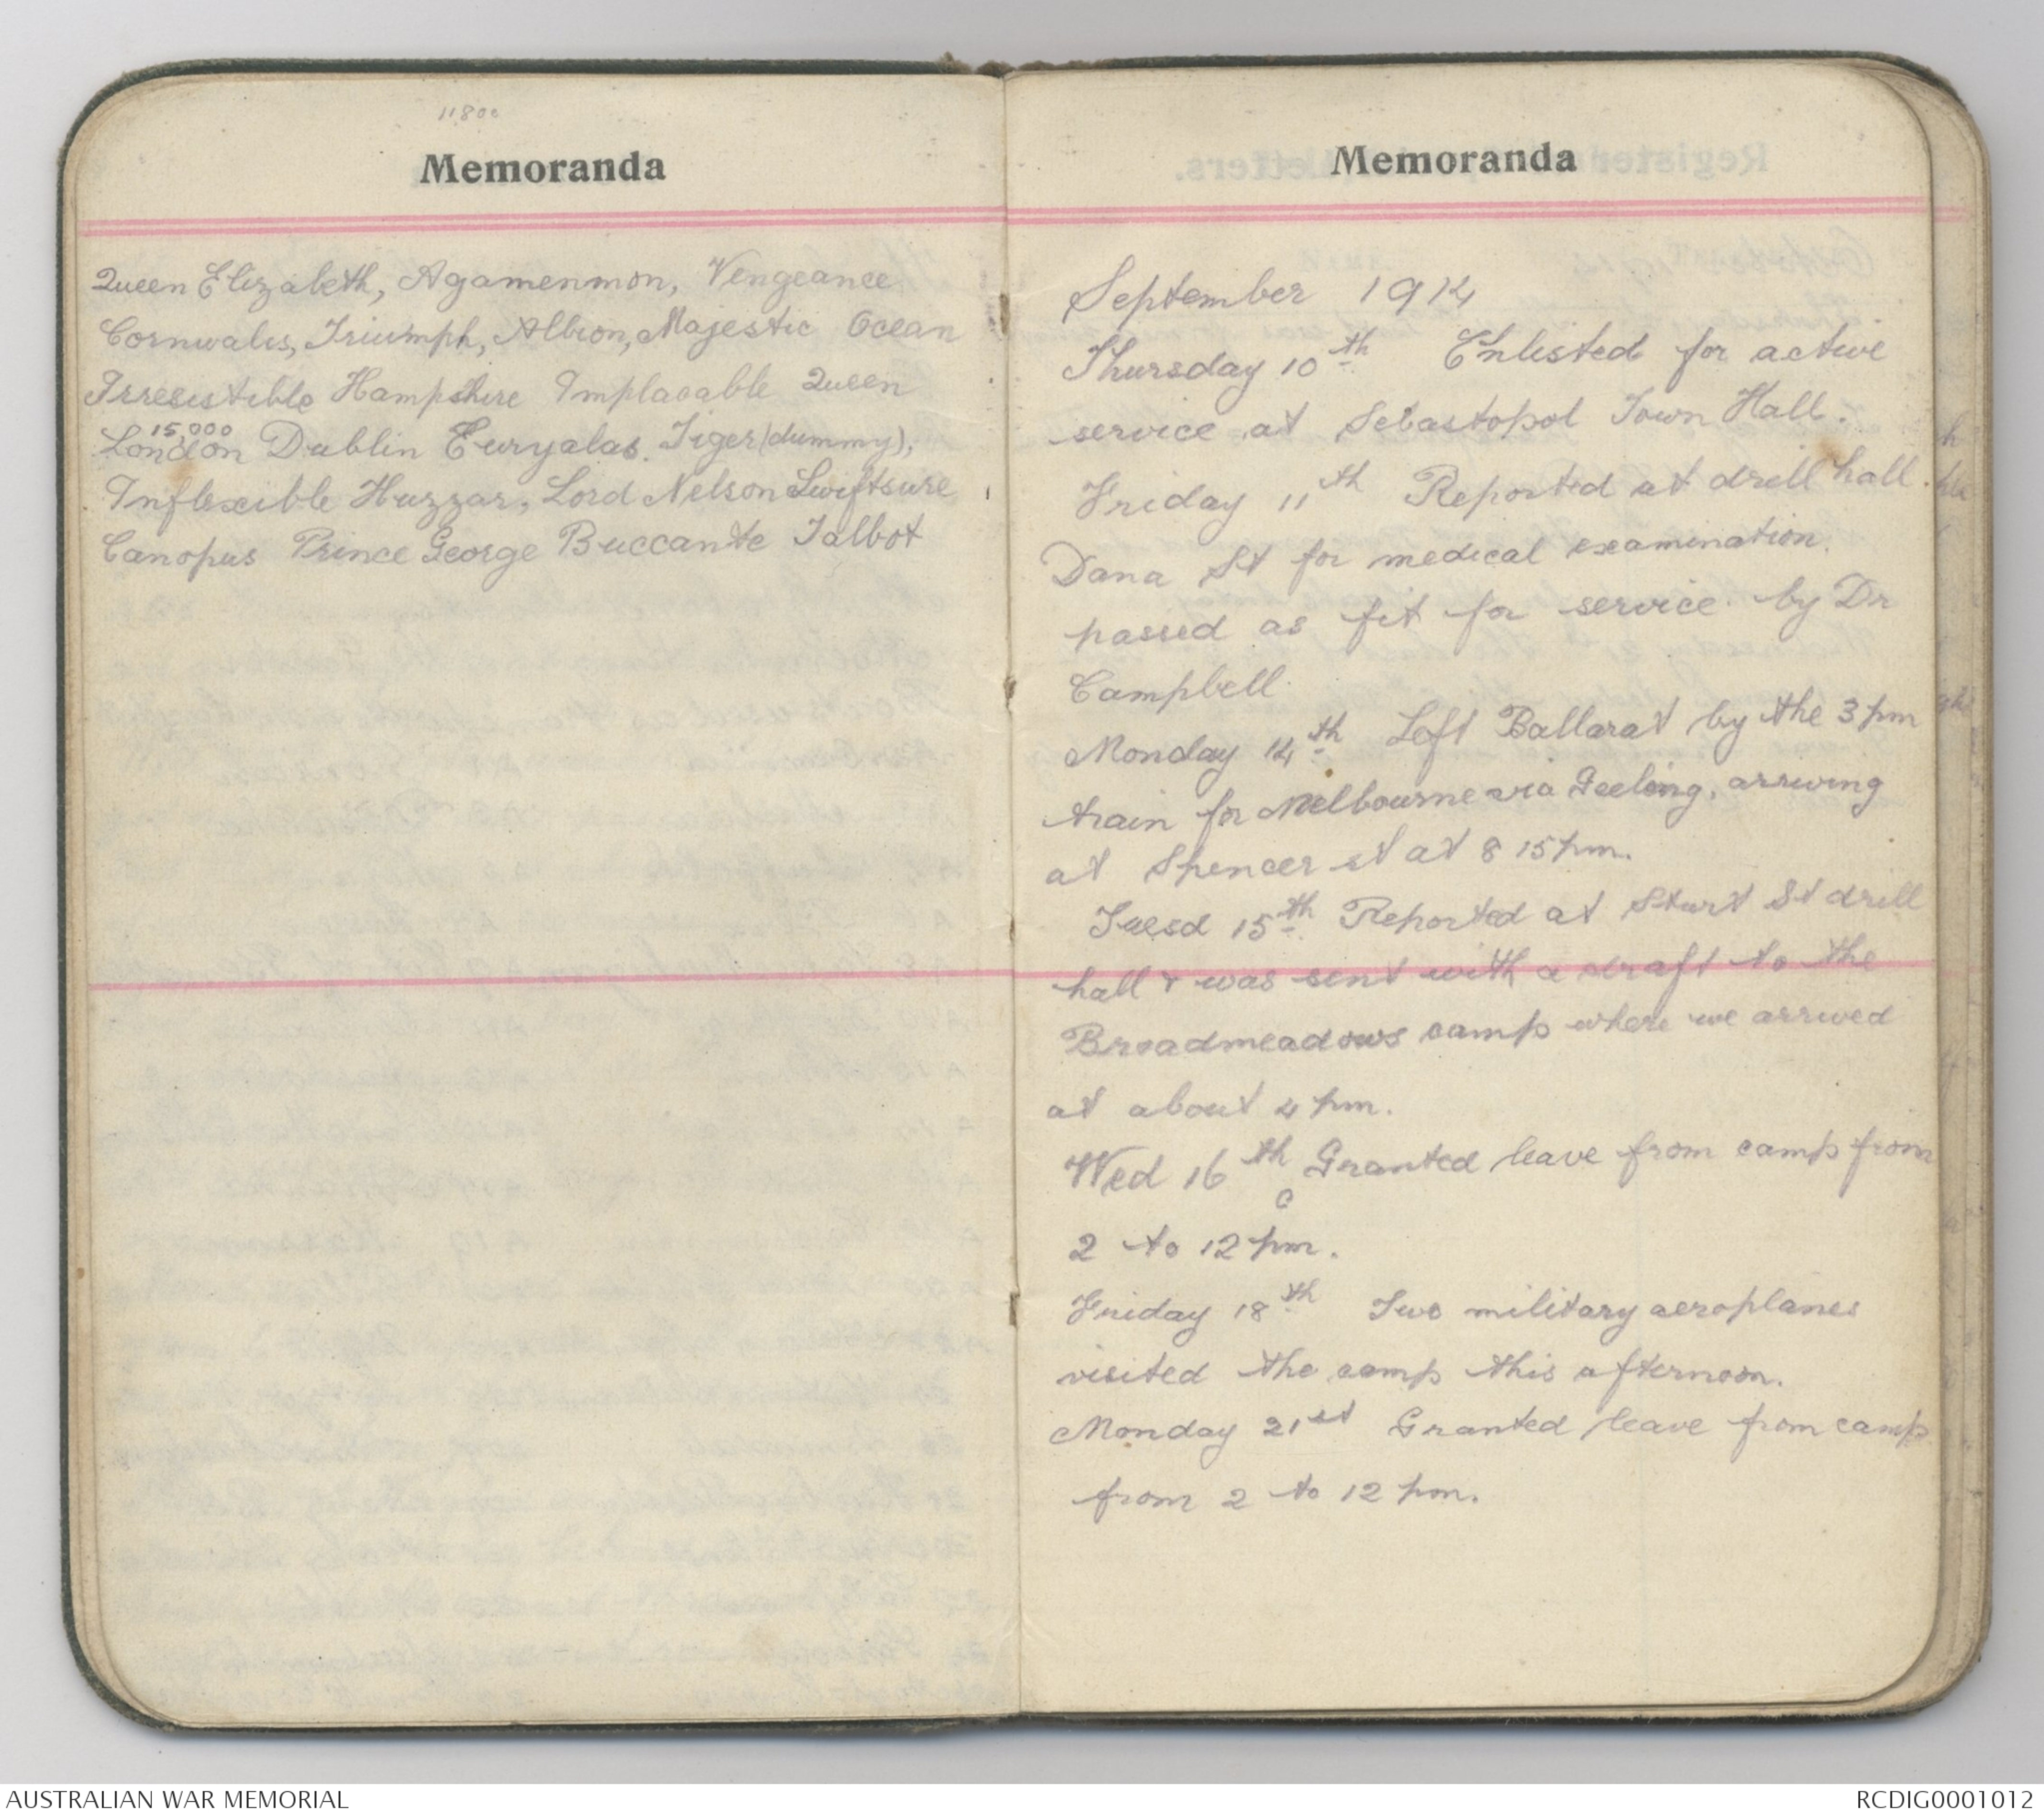 11800
Memoranda
Queen Elizabeth, Agamenmon, Vengeance
Cornwalis, Triumph, Albion, Majestic Ocean
Irresistible Hampshire Implacable Queen
15,000
London Dublin Euryalas. Tiger (dummy),
Inflexible Huzzar, Lord Nelson Swiftsure
Canopus Prince George Buccante Talbot
Memoranda
September 1914
Thursday 10th Enlisted for active
service at Sebastopol Town Hall.
Friday 11th Reported at drill hall.
Dana St for medical examination.
passed as fit for service by Dr
Campbell.
Monday 14th Left Ballarat by the 3 pm
train for Melbourne via Geelong, arriving
at Spencer st at 8 15 pm.
Tuesd 15th Reported at Sturt St drill
hall & was sent with a draft to the
Broadmeadows camp where we arrived
at about 4 pm.
Wed 16th Granted leave from camp from
2 to 12 pm.
Friday 18th Two military aeroplanes
visited the camp this afternoon.
Monday 21st Granted leave from camp
from 2 to 12 pm.
AUSTRALIAN WAR MEMORIAL
RCDIG0001012